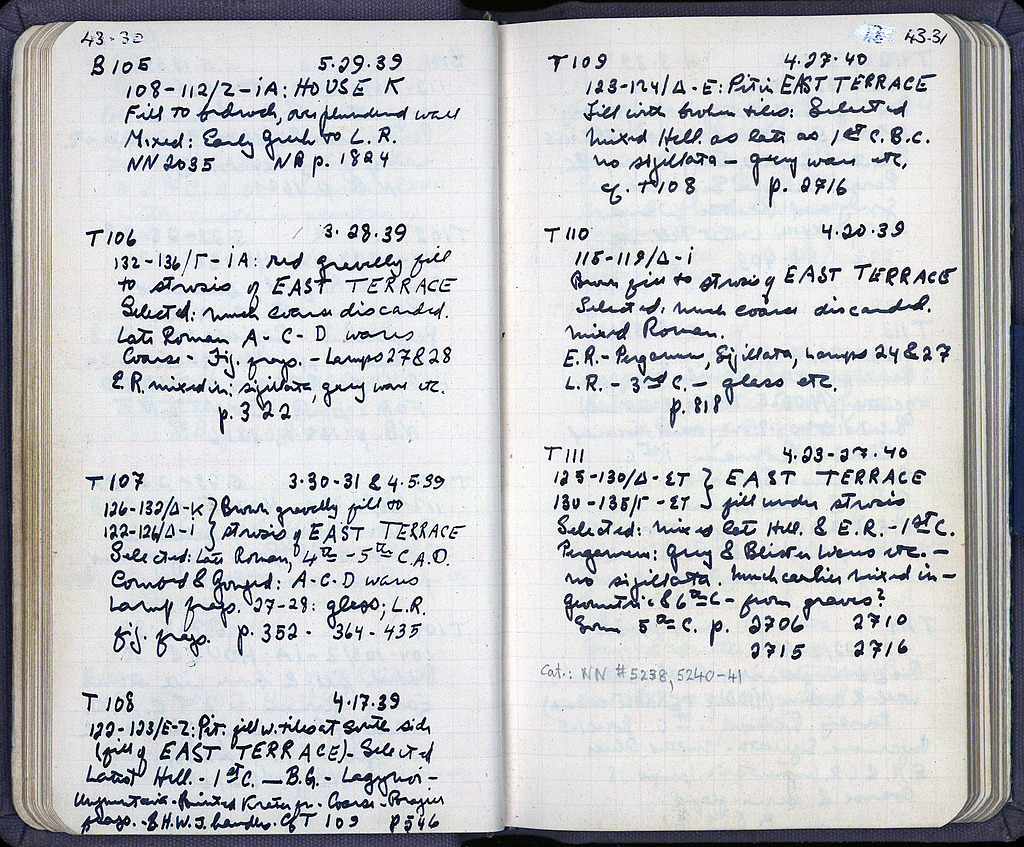 43-30
B 105 5.29.39
108-112/Z-ΙΑ: HOUSE K
Fill to bedrock, over plundered wall
Mixed: Early Greek to L.R.
NN 2035 NB p. 1824
T 106 3.28.39
132-136/Γ-ΙΑ: red gravelly fill
to strosis of EAST TERRACE
Selected: much coarse discarded.
Late Roman A-C-D wares
Coarse - Fig. frags. - Lamps 27 & 28
E.R. mixed in: sigillata, grey ware etc.
p. 322
T 107 3.30-31 & 4.5.39
126-132/Δ-Κ } Brown gravelly fill to
122-126/Δ-Ι } strosis of EAST TERRACE
Selected: Late Roman, 4th-5th C.A.D.
Combed & Gouged: A-C-D wares
Lamp frags. 27-28: glass; L.R.
fig. frags. p. 352- 364-435
T 108 4.17.39
122-123/E-Z: Pit. fill w. tiles at South side
(fill of EAST TERRACE)- Selected
Latest Hell. - 1st C. - B.G. - Lagynoi -
Unguentaria - Painted Krater fr. - Coarse - Brazier
frags. - & H.W.J. handles. Cf T 109 p 546
43-31
T 109 4.27.40
123-124/Δ-E: Pit in EAST TERRACE
Fill with broken tiles: Selected
mixed Hell. as late as 1st C. B.C.
no sigillata - grey ware etc,
cf. T 108 p. 2716
T 110 4.20.39
115-119/Δ-Ι
Brown fill to strosis of EAST TERRACE
Selected, much coarse discarded.
mixed Roman.
E.R. - Pergamene, Sigillata, Lamps 24 & 27
L.R. - 3rd C. - glass etc.
p. 818
T 111 4.23-27.40
125-130/Δ-ΣΤ } EAST TERRACE
130-135/Γ-ΣΤ } fill under strosis
Selected: mixed late Hell. & E.R. - 1st C.
Pergamene: Grey & Blister Wares etc. -
no sigillata. Much earlier mixed in -
Geometric & 6th C - from graves?
Some 5th C. p. 2706 2710
2715 2716
Cat.: NN #5238, 5240-41